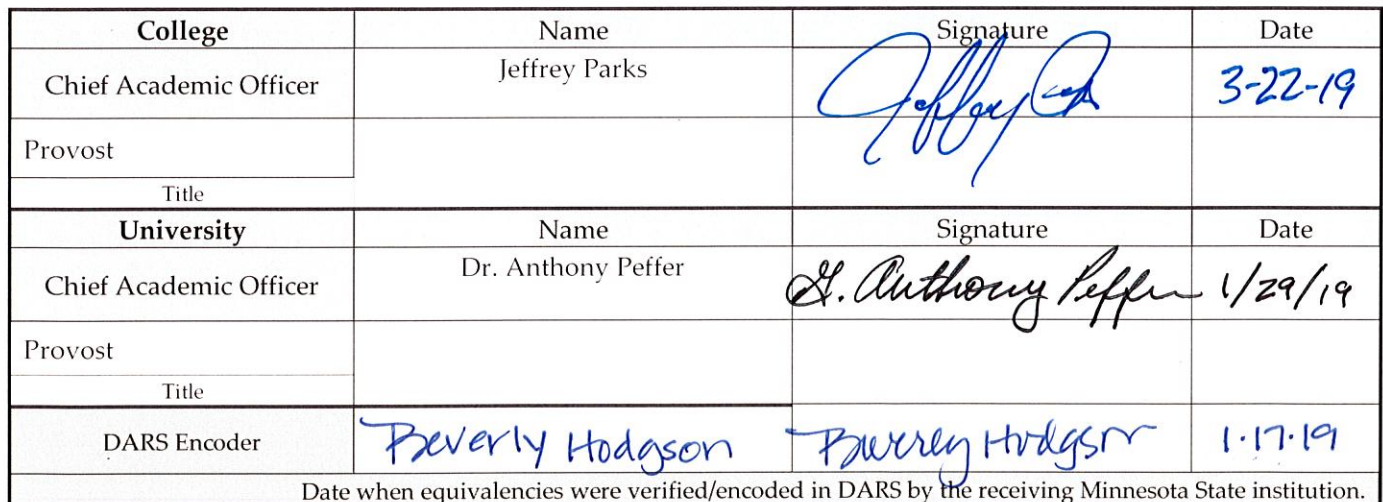 College Name Signature Date
Chief Academic Officer Jeffrey Parks Jeffrey 3-22-19
Provost
Title
University Name Signature Date
Chief Academic Officer Dr. Anthony Peffer G. Anthony Peffer 1/29/19
Provost
Title
DARS Encoder Beverly Hodgson Beverly Hodgson 1.17.19
Date when equivalencies were verified/encoded in DARS by the receiving Minnesota State institution.